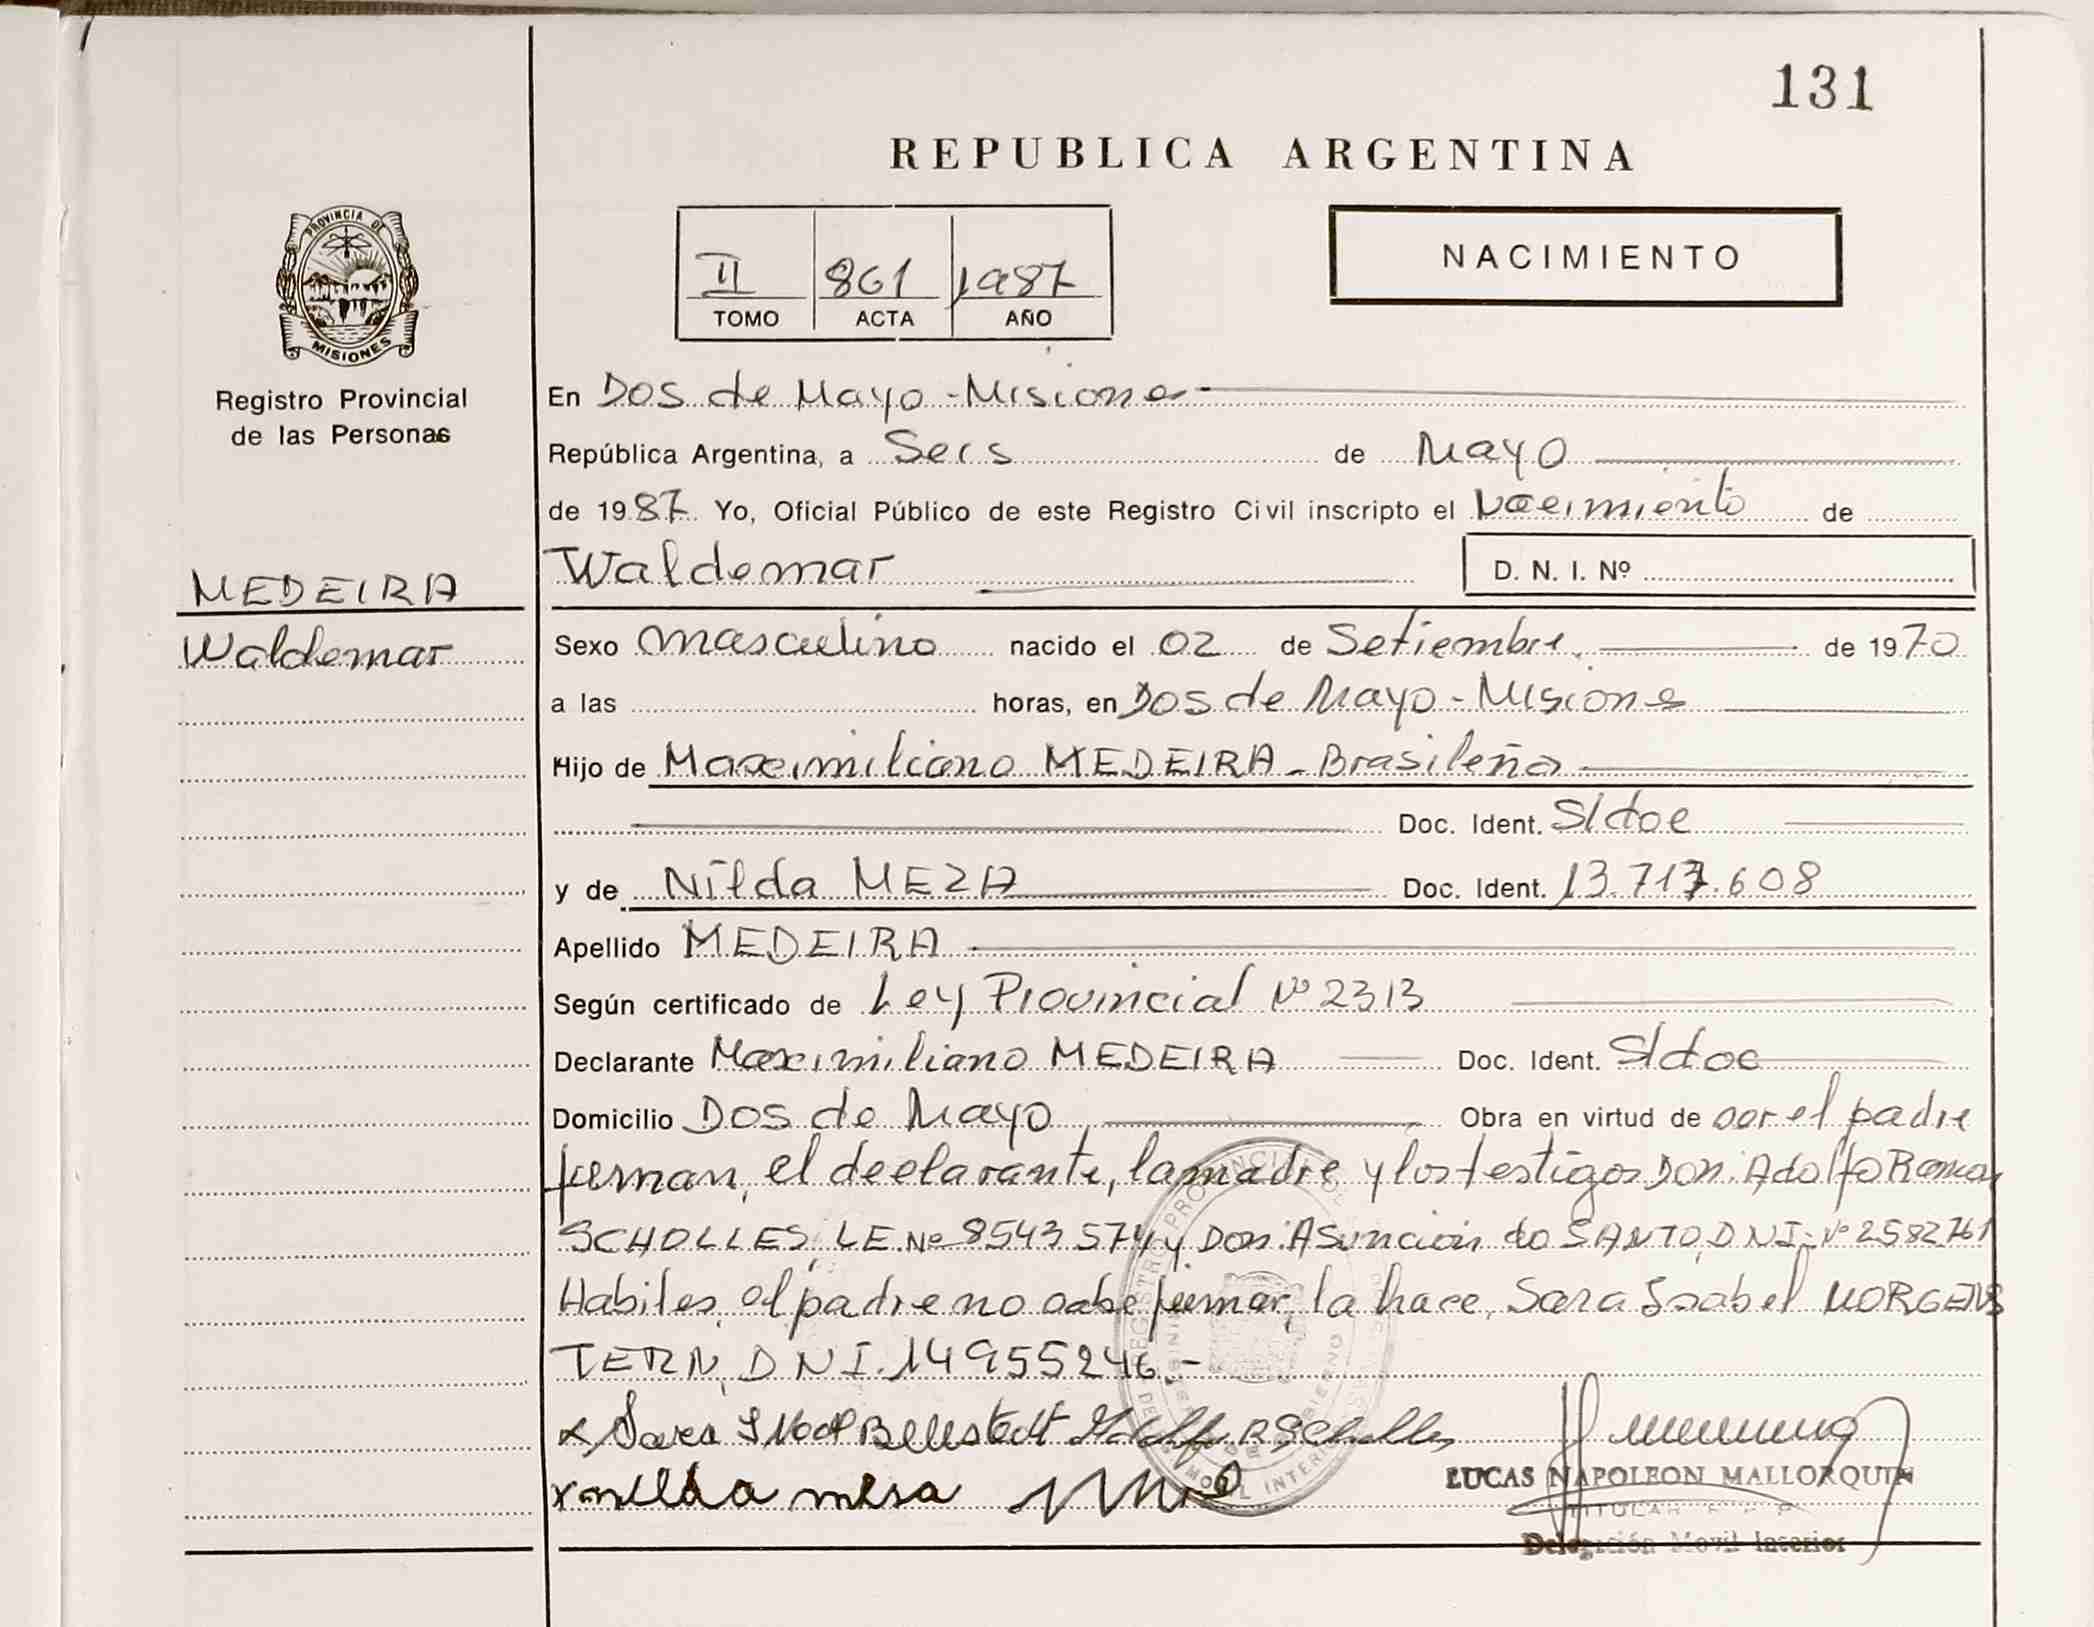 131
REPUBLICA ARGENTINA
PROVINCIA DE
MISIONES
Registro Provincial
de las Personas
II 861 1987
TOMO ACTA AÑO
NACIMIENTO
En Dos de Mayo - Misiones
República Argentina, a Seis de Mayo
de 1987 Yo, Oficial Público de este Registro Civil inscripto el Nacimiento de
Waldemar D. N. I. Nº
MEDEIRA
Waldemar
Sexo masculino nacido el 02 de Setiembre de 1970
a las horas, en Dos de Mayo - Misiones
Hijo de Maximiliano MEDEIRA - Brasileño
Doc. Ident. S/doc
y de Nilda MEZA Doc. Ident. 13.717.608
Apellido MEDEIRA
Según certificado de Ley Provincial Nº 2313
Declarante Maximiliano MEDEIRA Doc. Ident. S/doc
Domicilio Dos de Mayo Obra en virtud de ser el padre
firman, el declarante, la madre y los testigos Don: Adolfo Roman
SCHOLLES, LE Nº 8543574 y Don: Asuncion do SANTO, DNI: Nº 2582761
Habiles, el padre no sabe firmar, la hace, Sara Isabel MORGENS
TERN, DNI. 14955246.-
LUCAS NAPOLEON MALLORQUIN
TITULAR
Delegación Movil Interior